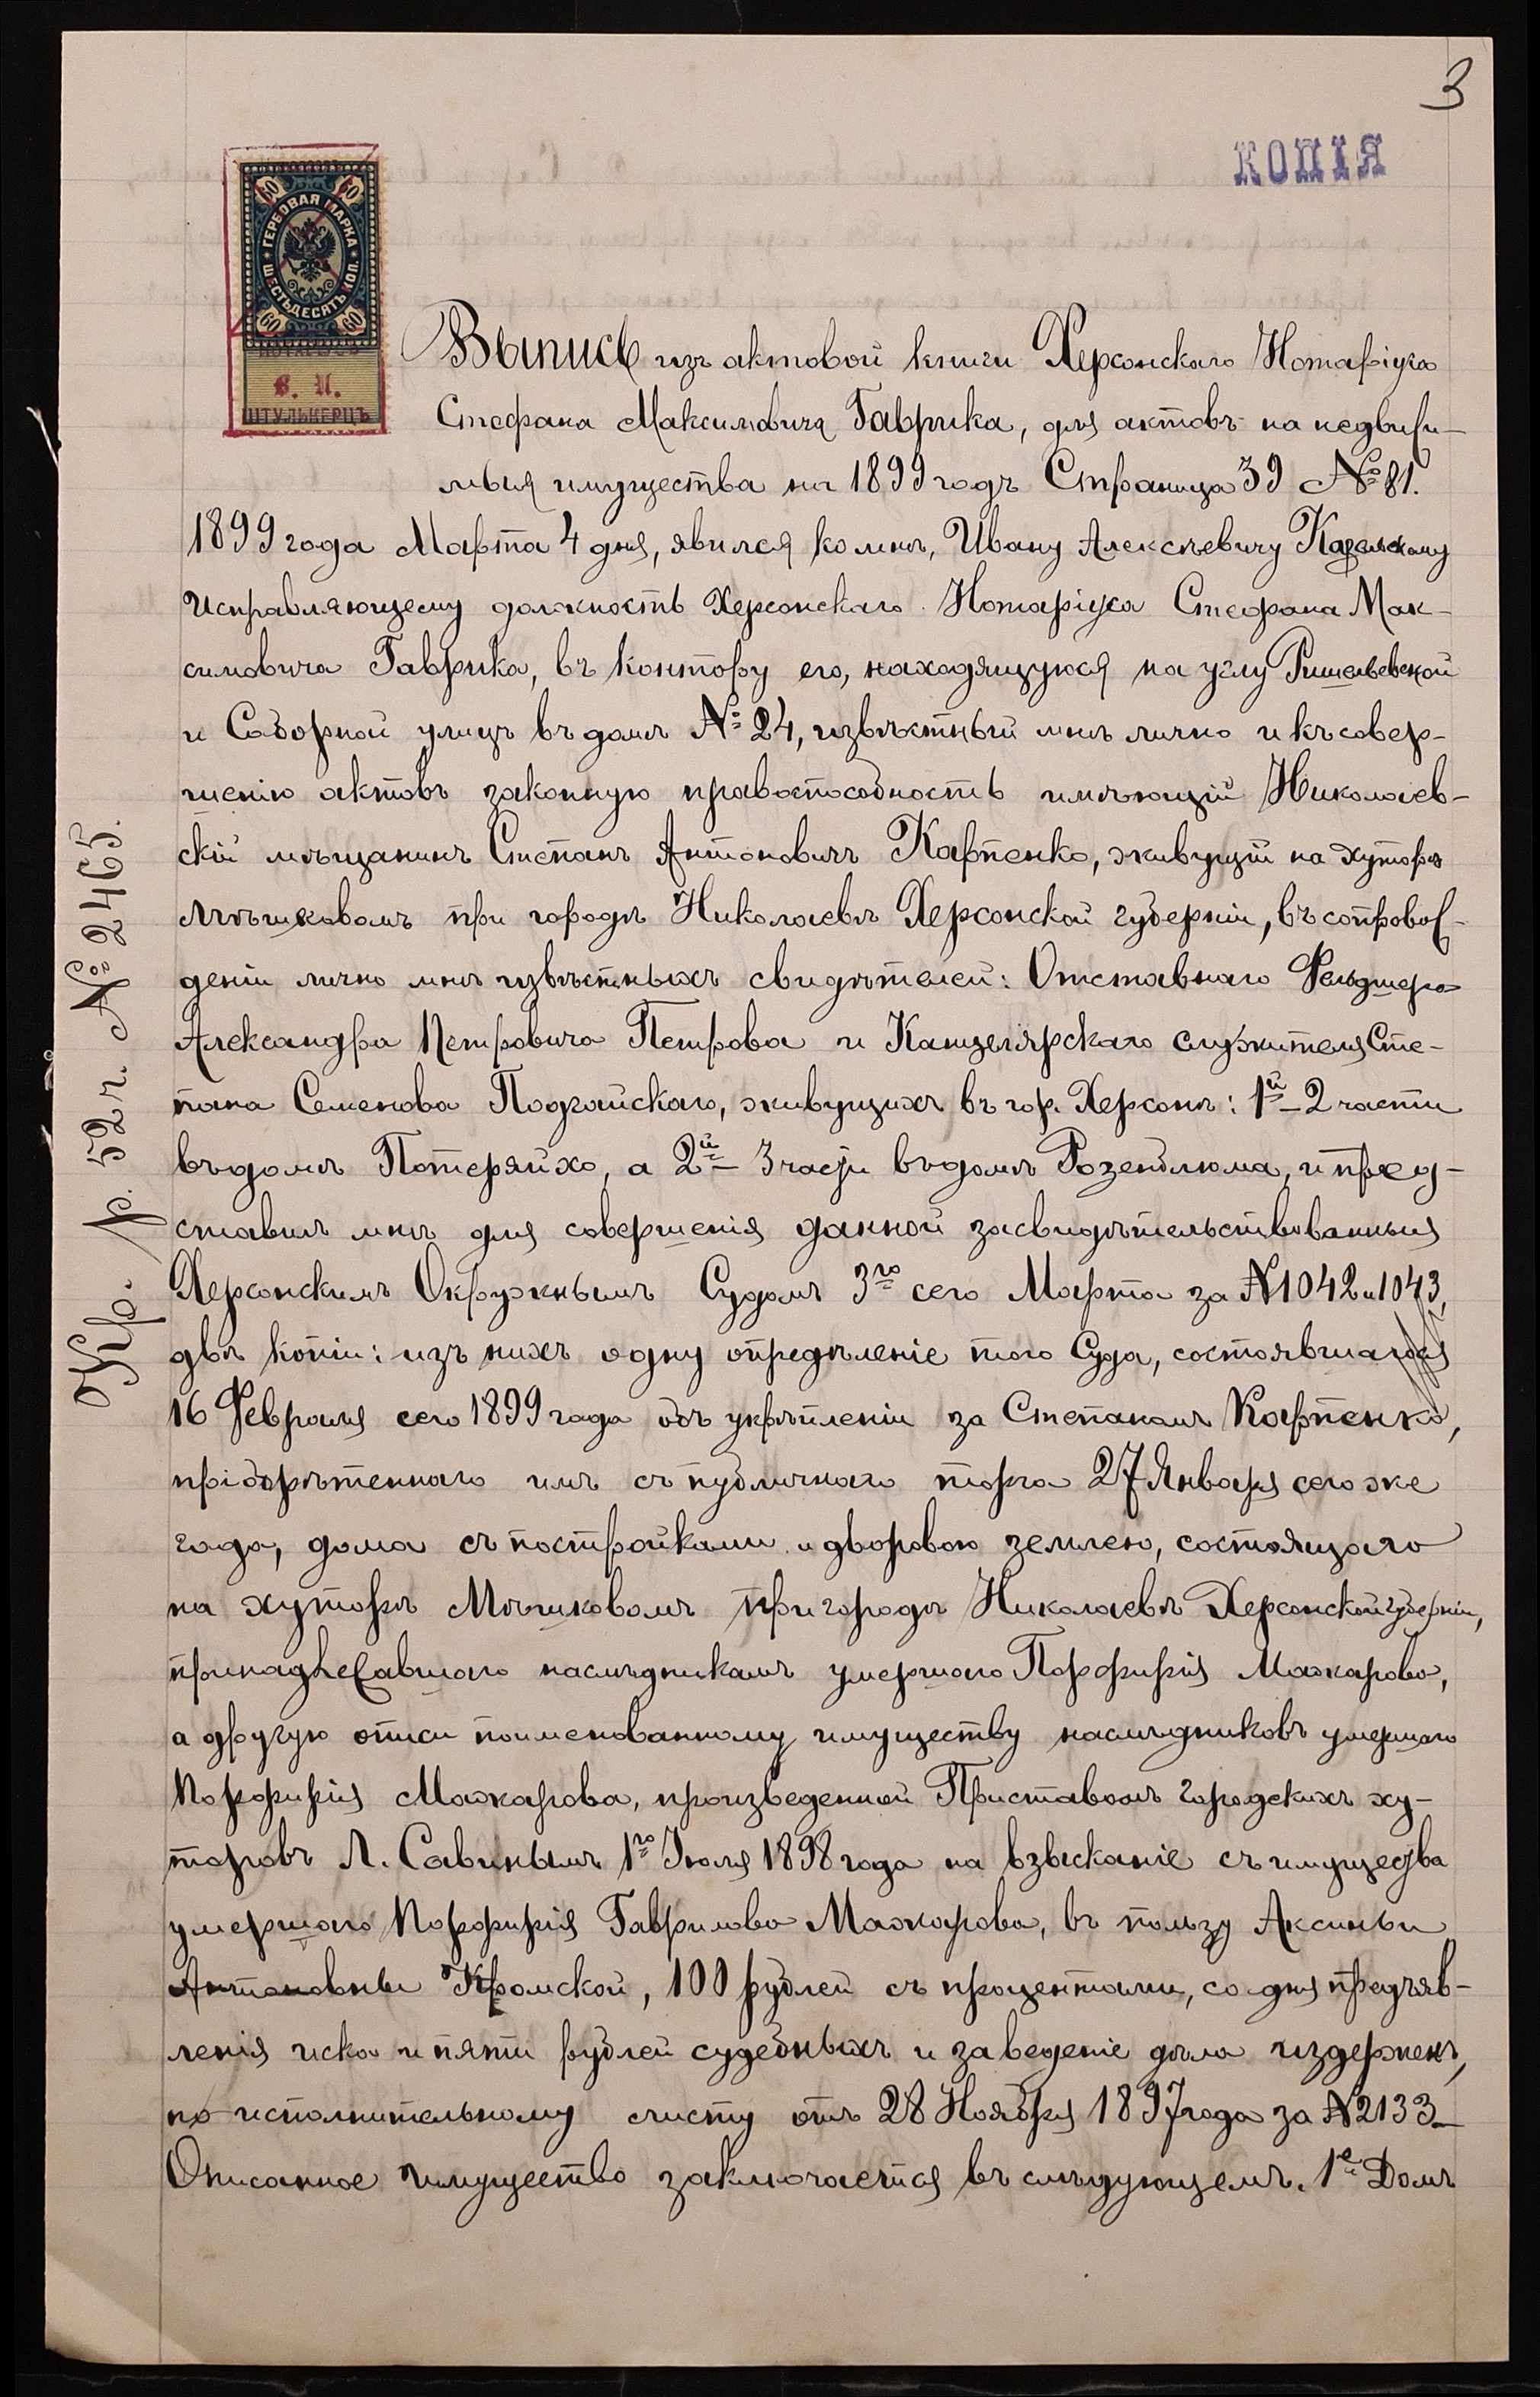 3
КОПІЯ
60 60
ГЕРБОВАЯ МАРКА
ШЕСТЬДЕСЯТЪ КОП.
60 60
В. И.
ШТУЛЬКЕРЦЪ
Выпись изъ актовой книги Херсонскаго Нотаріуса
Стефана Максимовича Гаврика, для актовъ на недвижи-
мыя имущества на 1899 годъ Страница 39 № 81.
1899 года Марта 4 дня, явился ко мнѣ, Ивану Алексѣевичу
Исправляющему должность Херсонскаго Нотаріуса Стефана Мак-
симовича Гаврика, въ контору его, находящуюся на углу Ришельевской
и Соборной улицъ въ домѣ № 24, извѣстный мнѣ лично и къ совер-
шенію актовъ законную правоспособность имѣющій Николаев-
скій мѣщанинъ Степанъ Антоновичъ Карпенко, живущій на хуторѣ
Мѣшковомъ при городѣ Николаевѣ Херсонской губерніи, въ сопровож-
деніи лично мнѣ извѣстныхъ свидѣтелей: Отставнаго Фельдшера
Александра Петровича Петрова и Канцелярскаго служителя Сте-
пана Семенова Подгайскаго, живущихъ въ гор. Херсонѣ: 1й – 2 части
въ домѣ Потеряйхо, а 2й – 3 части въ домѣ Розенблюма, и пред-
ставилъ мнѣ для совершенія данной засвидѣтельствованныя
Херсонскимъ Окружнымъ Судомъ 3го сего Марта за № 1042 и 1043,
двѣ копіи: изъ нихъ одну опредѣленіе того Суда, состоявшагося
16 Февраля сего 1899 года объ укрѣпленіи за Степаномъ Карпенко,
пріобрѣтеннаго имъ съ публичнаго торга 27 Января сего же
года, дома съ постройками и дворовою землею, состоящаго
на хуторѣ Мѣшковомъ при городѣ Николаевѣ Херсонской губерніи,
принадлежавшаго наслѣдникамъ умершаго Порфирія Мажарова,
а другую описи поименованному имуществу наслѣдниковъ умершаго
Порфирія Мажарова, произведенной Приставомъ городскихъ ху-
торовъ Л. Савинымъ 1го Іюля 1898 года на взысканіе съ имущества
умершаго Порфирія Гаврилова Мажарова, въ пользу Аксиньи
Антоновны Кромской, 100 рублей съ процентами, со дня предъяв-
ленія иска и пяти рублей судебныхъ и за веденіе дѣла издержекъ,
по исполнительному листу отъ 28 Ноября 1897 года за № 2133 –
Описанное имущество заключается въ слѣдующемъ. 1е Домъ
Укр. Кр. 52 ч. № 2465.